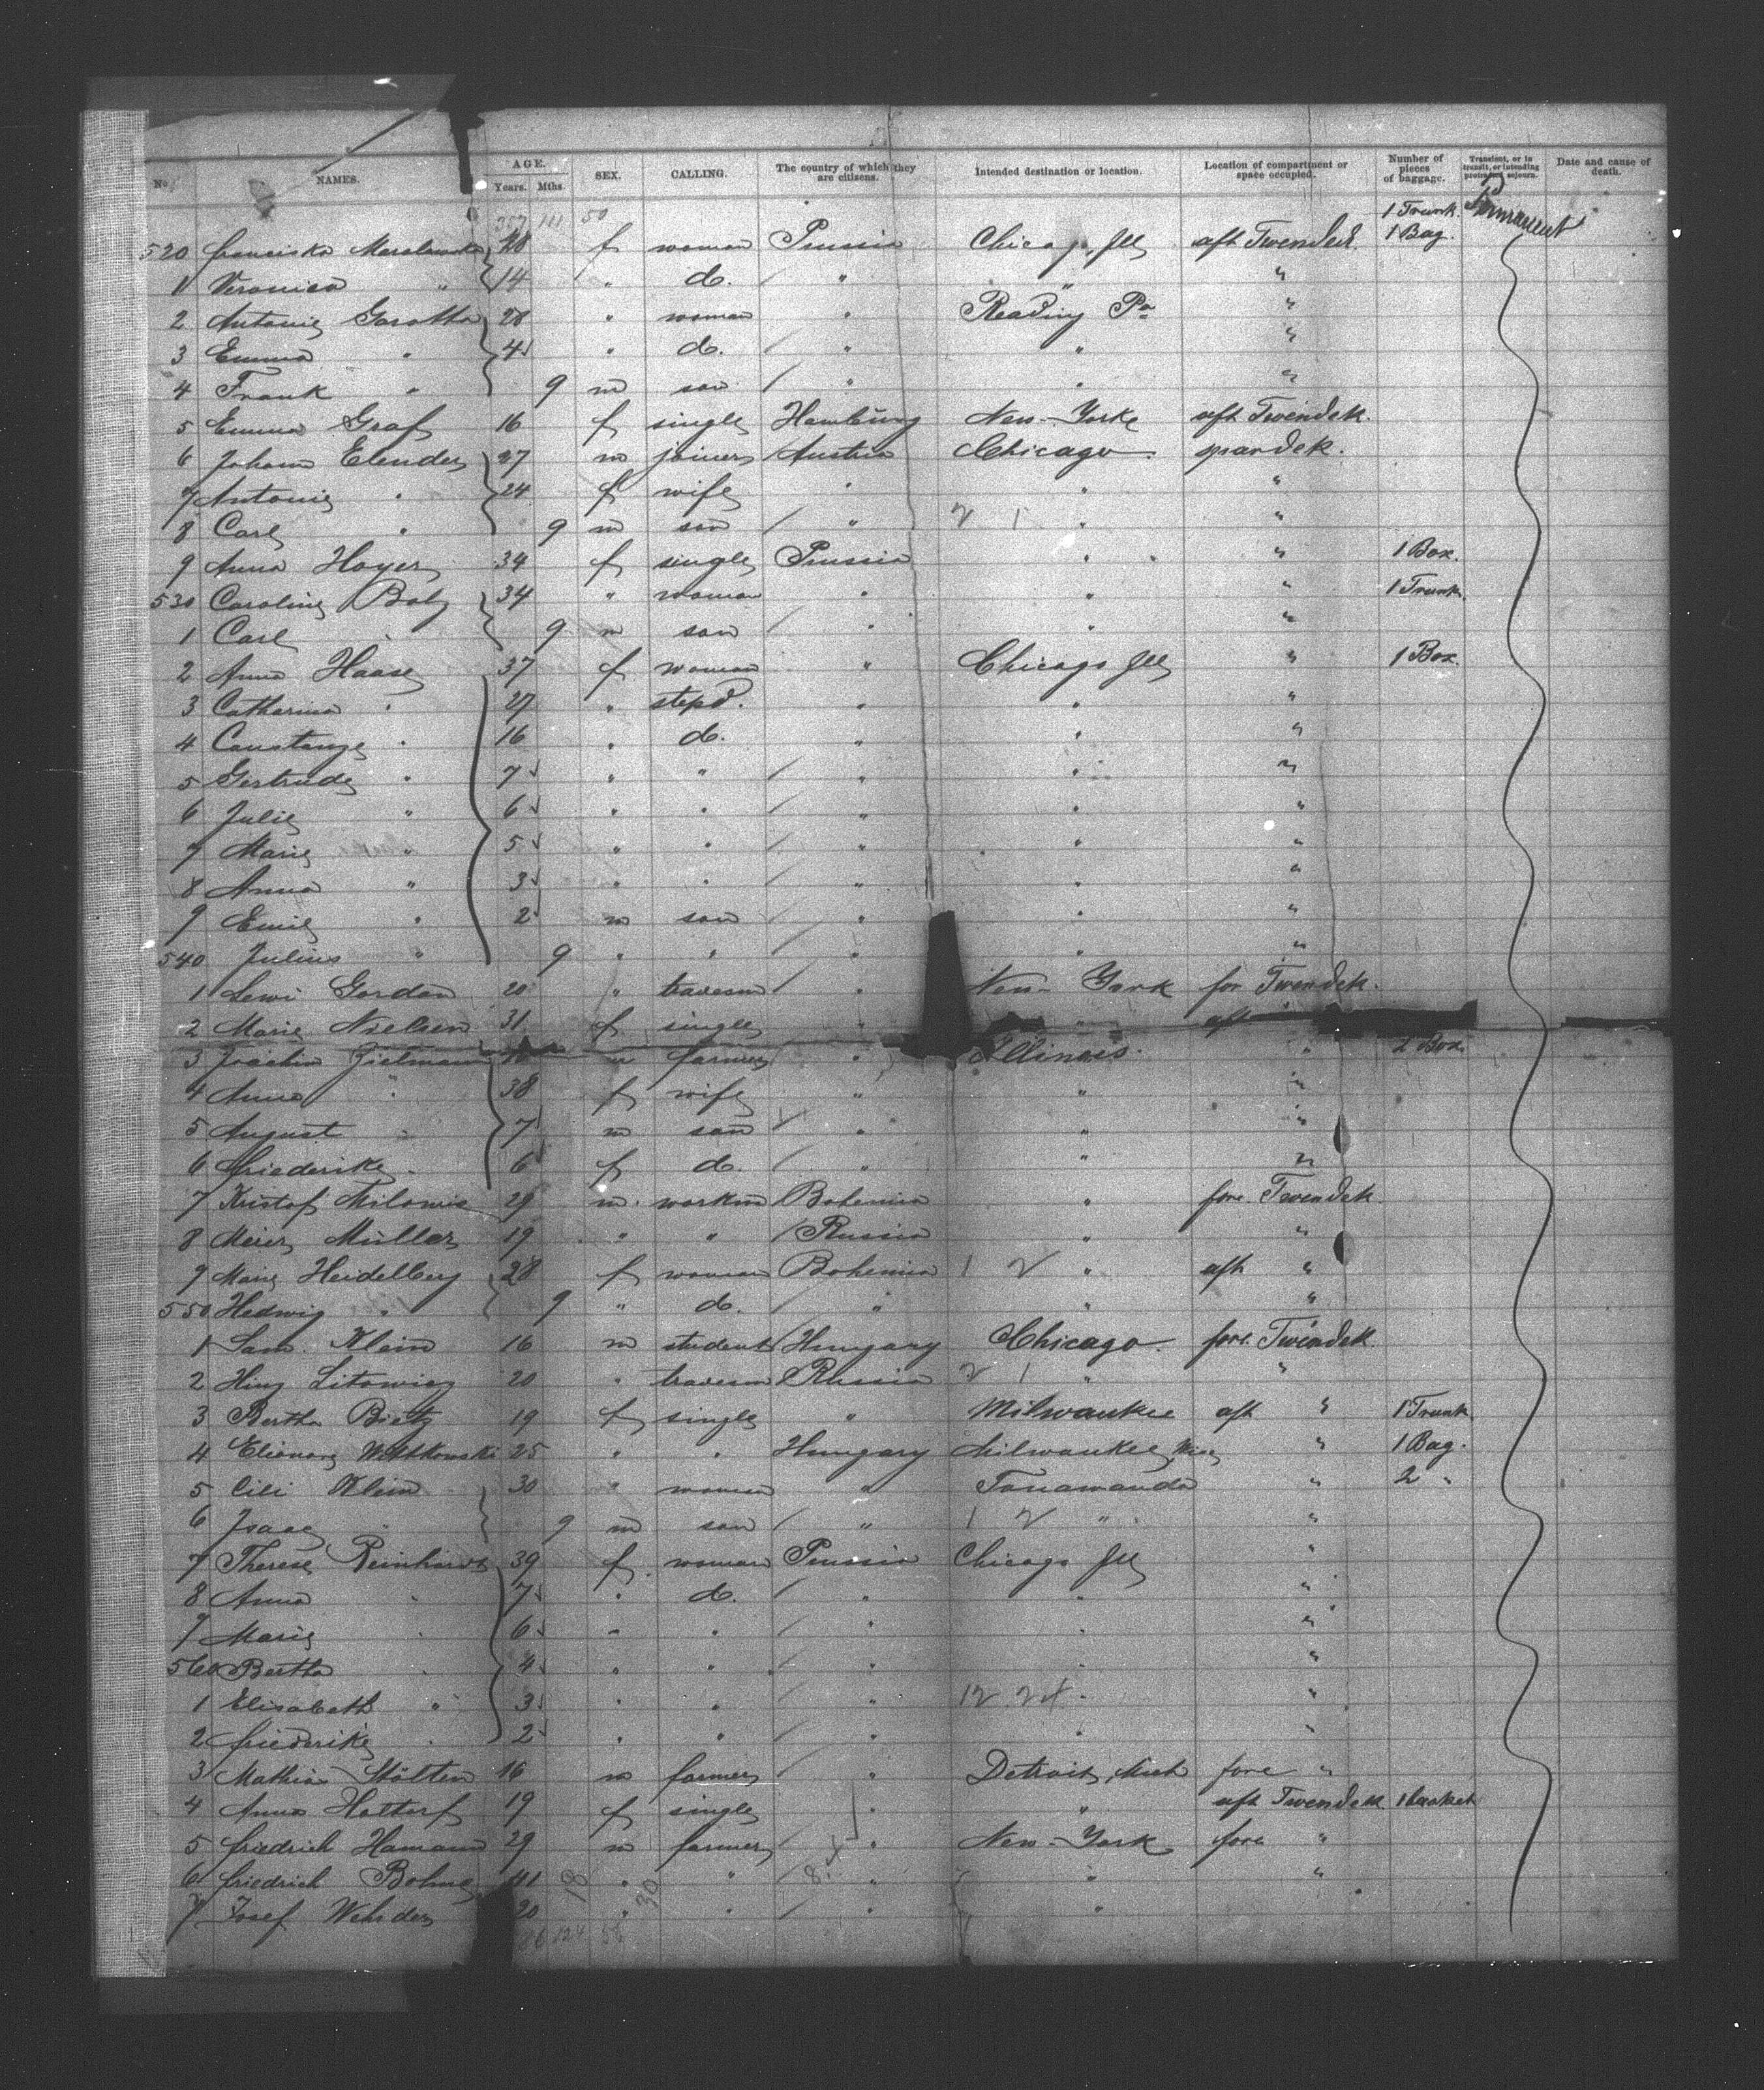 No. NAMES. AGE. Years. Mths. SEX. CALLING. The country of which they are citizens. Intended destination or location. Location of compartment or space occupied. Number of pieces of baggage. Transient, or in transit, or intending protracted sojourn. Date and cause of death.
357 111 50 1 Trunk. Permanent
520 Franziska 28 f woman Prussia Chicago, Ill aft Twendeck. 1 Bag.
1 Veronica " 14 " do. " " "
2 Antonie Garotha 28 " woman " Reading Pa "
3 Emma " 4 " do. " " "
4 Frank " 9 m son " " "
5 Emma Graf 16 f single Hamburg New-Yorke aft Twendek.
6 Johann Elender 27 m joiner Austria Chicago. spardek.
7 Antonie " 24 f wife " " "
8 Carl " 9 m son " 2 1 " "
9 Anna Hoyer 34 f single Prussia " " " 1 Box.
530 Caroline Boly 34 " woman " " " 1 Trunk.
1 Carl " 9 m son " " "
2 Anna Haase 37 f woman " Chicago Ill " 1 Box.
3 Catharina " 27 " stepd. " " "
4 Constanze " 16 " do. " " "
5 Gertrude " 7 " " " " "
6 Julie " 6 " " " " "
7 Marie " 5 " " " " "
8 Anna " 3 " " " " "
9 Emil " 2 m son " " "
540 Julius " 9 " " " " "
1 Lewi Gordon 20 " tradesm " New-York for Twendek.
2 Marie Nielsen 31 f single " " aft
3 Joachim Zielmann m farmer " Illinois. " 2 Box.
4 Anna " 38 f wife " " "
5 August " 7 m son " " "
6 Friederike " 6 f do. " " "
7 Kristof Milowic 29 m. workm Bohemia " fore. Twendek
8 Meier Müller 19 " " Russia " "
9 Marie Heidelberg 28 f woman Bohemia 1 2 " aft "
550 Hedwig " 9 " do. " " "
1 Sam. Klein 16 m student Hungary Chicago. fore. Twendek.
2 Litowicz 20 " tradesm Russia 2 1 " "
3 Bertha Bietz 19 f single " Milwaukee aft " 1 Trunk.
4 Elionore Wittkowski 25 " " Hungary Milwaukee, " 1 Bag.
5 Cili Klein 30 " woman " Tonawanda " 2 "
6 Isaac " 9 m son " 1 2 " "
7 Therese Reinhardt 39 f. woman Prussia Chicago Ill "
8 Anna " 7 " do. " " "
9 Marie " 6 " " " " "
560 Bertha " 4 " " " " "
1 Elisabeth " 3 " " " 12 24 " "
2 Friederike " 2 " " " " "
3 Mathias Stölten 16 m farmer " Detroit, Mich fore "
4 Anna Hattorf 19 f single " " aft Twendek 1 basket
5 Friedrich Hamann 29 m farmer " New-York fore "
6 Friedrich Bohme 41 " " " " "
7 Josef Wehrder 20 " " " "
18 30 84
124 56